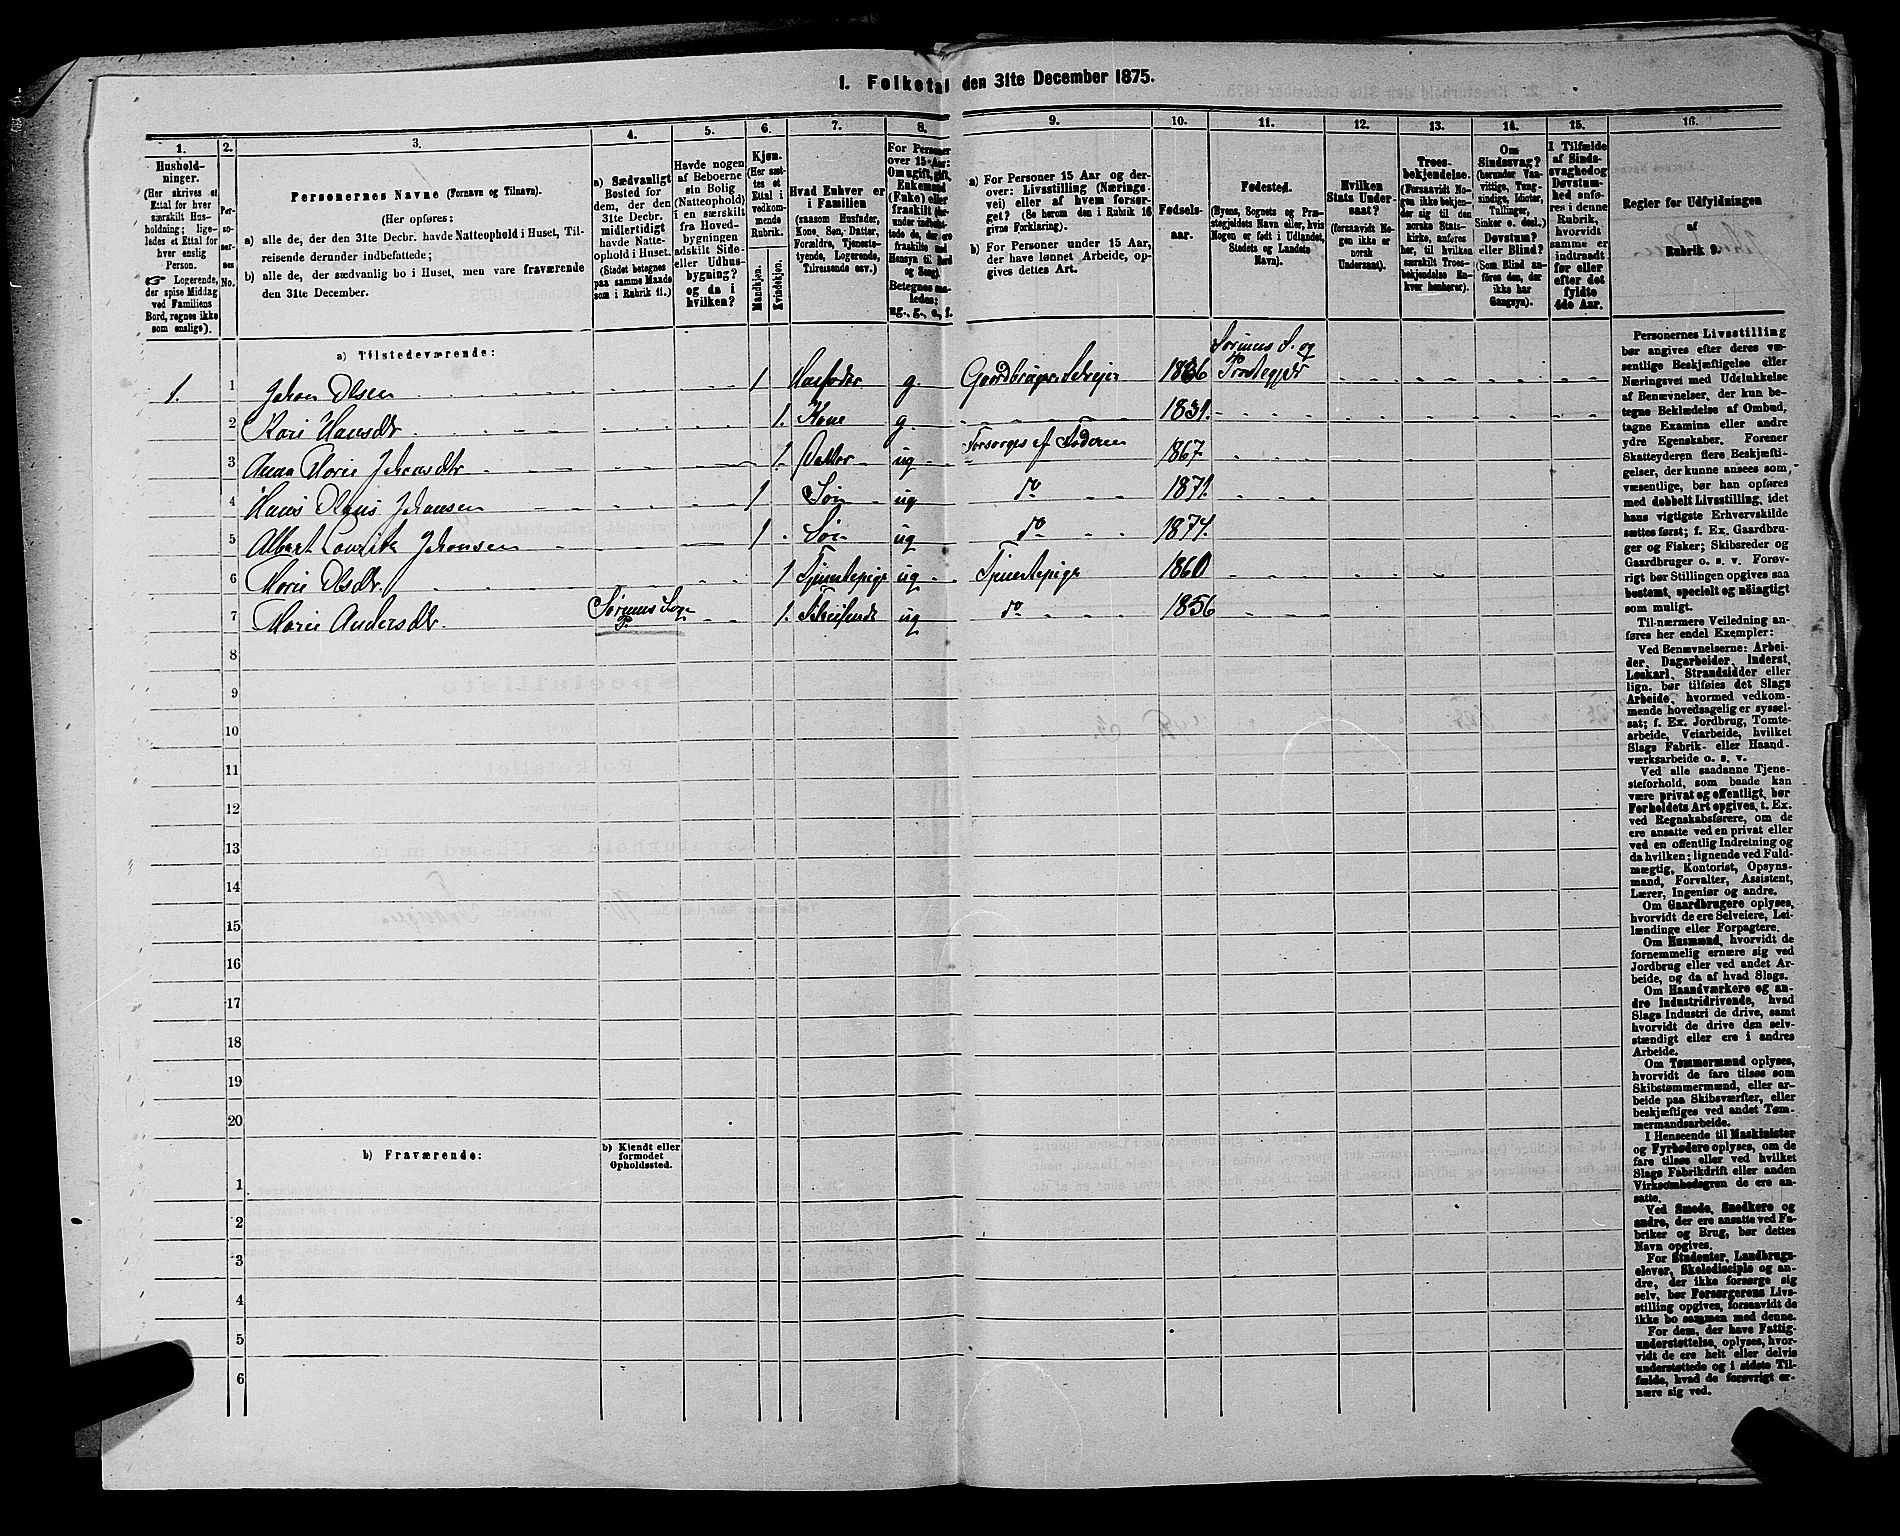 1. Folketal den 31te December 1875.
1.
Hushold-
ninger.
(Her skrives et
Ettal for hver
særskilt Hus-
holdning; lige-
ledes et Ettal for
hver enslig
Person.
☞ Logerende,
der spise Middag
ved Familiens
Bord, regnes ikke
som enslige).
2.
Per-
so-
ner-
nes
No.
3.
Personernes Navne (Fornavn og Tilnavn).
(Her opføres:
a) alle de, der den 31te Decbr. havde Natteophold i Huset, Til-
reisende derunder indbefattede;
b) alle de, der sædvanlig bo i Huset, men vare fraværende
den 31te December.
4.
a) Sædvanligt
Bosted for
dem, der den
31te Decbr.
midlertidigt
havde Natte-
ophold i Huset.
(Stedet betegnes
paa samme Maade
som i Rubrik 11.)
5.
Havde nogen
af Beboerne
sin Bolig
(Natteophold)
i en særskilt
fra Hoved-
bygningen
adskilt Side-
eller Udhus-
bygning?
og da i
hvilken?
6.
Kjøn.
(Her sæt-
tes et
Ettal i
vedkom-
mende
Rubrik.
Mandkjøn.
Kvindekjøn.
7.
Hvad Enhver er
i Familien
(saasom Husfader,
Kone, Søn, Datter,
Forældre, Tjeneste-
tyende, Logerende,
Tilreisende osv.)
8.
For Personer
over 15 Aar:
Om ugift, gift,
Enkemand
(Enke) eller
fraskilt
Betegnes saa-
ledes:
ug., g., e., f.
9.
a) For Personer 15 Aar og der-
over: Livsstilling (Nærings-
vei) eller af hvem forsør-
get? (Se herom den i Rubrik 16
givne Forklaring).
b) For Personer under 15 Aar,
der have lønnet Arbeide, op-
gives dettes Art.
10.
Fødsels-
aar.
11.
Fødested.
(Byens, Sognets og Præ-
stegjeldets Navn eller, hvis
Nogen er født i Udlandet,
Stedets og Landets
Navn).
12.
Hvilken
Stats Under-
saat?
(forsaavidt No-
gen ikke er
norsk
Undersaat).
13.
Troes-
bekjendelse.
(Forsaavidt No-
gen ikke bekjen-
der sig til den
norske Stats-
kirke, anføres
her, til hvilken
særskilt Troes-
bekjendelse En-
hver henhører).
14.
Om
Sindssvag?
(herunder Van-
vittige, Tung-
sindige, Idioter,
Tullinger,
Sinker o. desl.)
Døvstum?
eller Blind?
(Som Blind an-
føres den, der
ikke har
Gangsyn).
15.
I Tilfælde
af Sinds-
svaghed og
Døvstum-
hed anfø-
res i denne
Rubrik,
hvorvidt
samme er
indtraadt
før eller
efter det
fyldte
4de Aar.
16.
Regler for Udfyldningen
af
Rubrik 9.
a) Tilstedeværende:
1. 1 Johan Olsen 1 Husfader g. Gaardbruger Selveier 1836 Sørums S. og Præstegjeld
2 Kari Hansdr 1. Kone g. 1831.
3 Anna Marie Johansdtr 1. Datter ug Forsørges af Faderen 1867
4 Hans Olaus Johansen 1 Søn ug do 1871.
5 Albert Lauritz Johansen 1 Søn ug do 1874.
6 Marie Olsdtr 1 Tjenestepige ug Tjenestepige 1860
7 Marie Andersdtr Sørums Sogn P. 1. Tilreisende ug do 1856
8
9
10
11
12
13
14
15
16
17
18
19
20
b) Fraværende:
b) Kjendt eller
formodet
Opholdssted.
1
2
3
4
5
6
Personernes Livsstilling
bør angives efter deres væ-
sentlige Beskjæftigelse eller
Næringsvei med Udelukkelse
af Benævnelser, der kun be-
tegne Beklædelse af Ombud,
tagne Examina eller andre
ydre Egenskaber. Forener
Skatteyderen flere Beskjæfti-
gelser, der kunne ansees som
væsentlige, bør han opføres
med dobbelt Livsstilling, idet
hans vigtigste Erhvervskilde
sættes først; f. Ex. Gaardbru-
ger og Fisker; Skibsreder og
Gaardbruger o. s. v. Forøv-
rigt bør Stillingen opgives saa
bestemt, specielt og nöiagtigt
som muligt.
Til nærmere Veiledning an-
føres her endel Exempler:
Ved Benævnelserne: Arbei-
der, Dagarbeider, Inderst,
Løskarl, Strandsidder eller
lign. bør tilføies det Slags
Arbeide, hvormed vedkom-
mende hovedsagelig er syssel-
sat; f. Ex. Jordbrug, Tomte-
arbeide, Veiarbeide, hvilket
Slags Fabrik- eller Haand-
værksarbeide o. s. v.
Ved alle saadanne Tjene-
steforhold, som baade kan
være privat og offentligt, bør
Forholdets Art opgives, t. Ex.
ved Regnskabsførere, om de
ere ansatte ved en privat eller
ved en offentlig Indretning og
da hvilken; lignende ved Fuld-
mægtig, Kontorist, Opsyns-
mand, Forvalter, Assistent,
Lærer, Ingeniør og andre.
Om Gaardbrugere oplyses,
hvorvidt de ere Selveiere, Lei-
lændinge eller Forpagtere.
Om Husmænd, hvorvidt de
fornemmelig ernære sig ved
Jordbrug eller ved andet Ar-
beide, og da af hvad Slags.
Om Haandværkere og an-
dre Industridrivende, hvad
Slags Industri de drive, samt
hvorvidt de drive den selv-
stændigt eller ere i andres
Arbeide.
Om Tømmermænd oplyses,
hvorvidt de fare tilsøs som
Skibstømmermænd, eller ar-
beide paa Skibsværfter, eller
beskjæftiges ved andet Tøm-
mermandsarbeide.
I Henseende til Maskinister
og Fyrbødere oplyses, om de
fare tilsøs eller ved hvilket
Slags Fabrikdrift eller anden
Virksomhedsgren de ere an-
satte.
Ved Smede, Snedkere og
andre, der ere ansatte ved Fa-
briker og Brug, bør dettes
Navn opgives.
For Studenter, Landbrugs-
elever, Skoledisciple og an-
dre, der ikke forsørge sig
selv, bør Forsørgerens Livs-
stilling opgives, forsaavidt de
ikke bo sammen med denne.
For dem, der have Fattig-
understøttelse, oplyses, hvor-
vidt de ere helt eller delvis
understøttede og i sidste Til-
fælde, hvad de forøvrigt er-
nære sig ved.